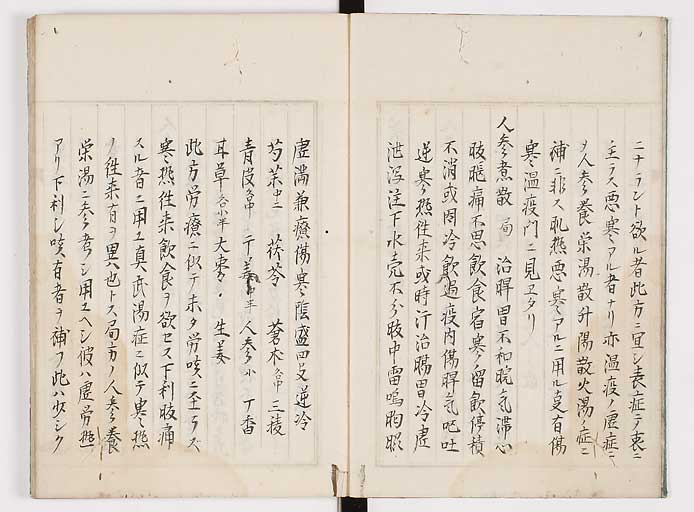 ニナラント欲ル者此方ニ宜シ表症テ衷ニ
主ラス悪寒アル者ナリ亦温疫ノ虚症ニ
ヲ人参養栄湯散升陽散火湯ノ症ニ
補ニ非ス乳熱悪寒アルニ用ル𫝆有傷
寒温疫門ニ見ヱタリ
人参煮散 局 治脾胃不和脘気滞心
腹脹痛不思飲食宿寒留飲停積
不消或因冷飲過度内傷脾気呕吐
逆寒熱往来或時汗治腸胃冷虚
泄瀉注下水壳不分腹中雷鳴胸膨
虚満兼癥傷寒陰盛四支逆冷
芍薬中ニ 茯苓 蒼朮各中 三棱
青皮各中 干姜中半 人参小 丁香
甘草各小半 大棗 生姜
此方労療ニ似テ未タ労咳ニ至ラズ
寒熱往来飲食ヲ欲セス下利腹痛
スル者ニ用ユ真武湯症ニ似テ寒熱
ノ往来有ヲ異ハ也トス局方ノ人参養
栄湯ニ参考シ用ユヘシ彼ハ虚労熱
アリ下利シ咳有者ヲ補フ此ハ少シク